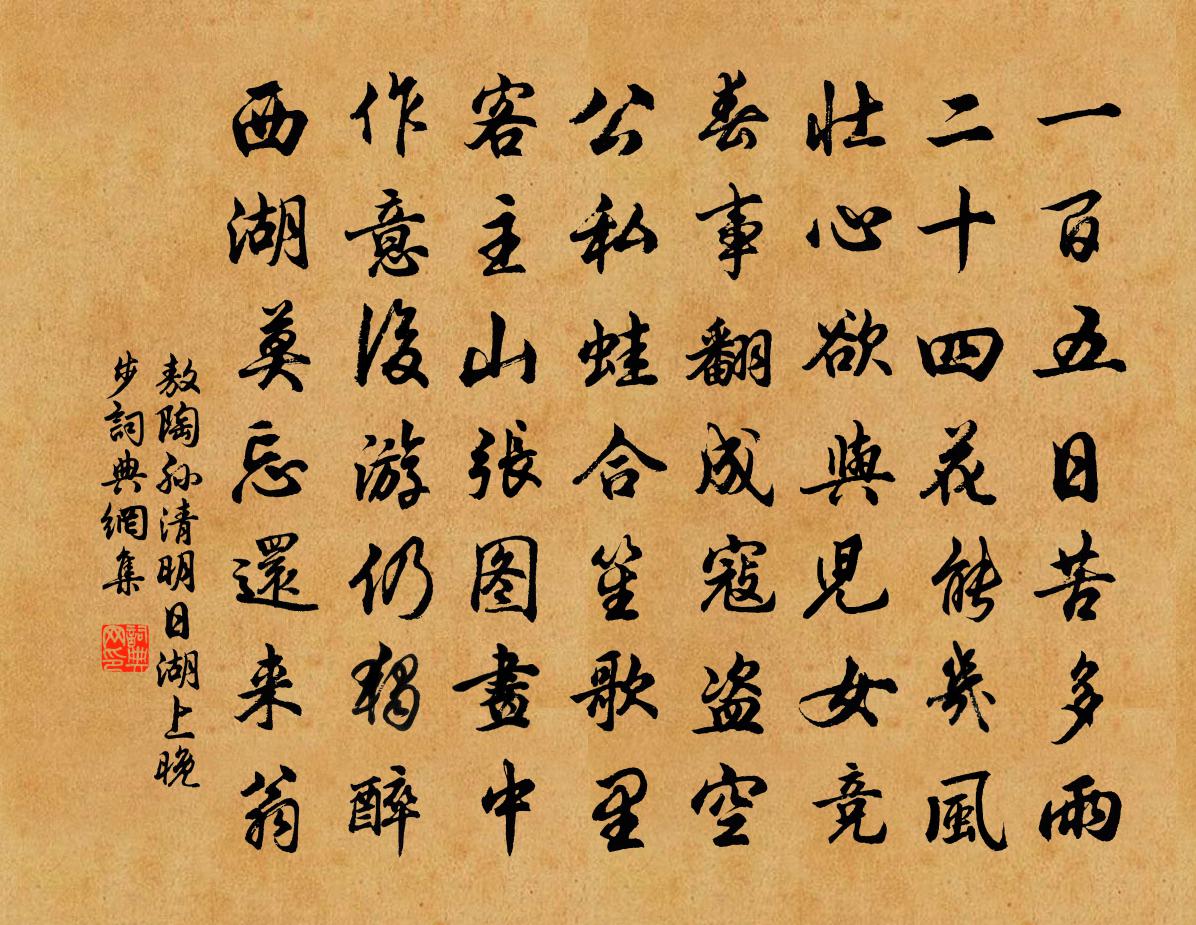 一百五日苦多雨
二十四花能幾風
壮心欲與兒女竞
春事翻成寇盗空
公私蛙合笙歌里
客主山張图畫中
作意後游仍独醉
西湖莫忘還来翁
敖陶孙清明日湖上晚
步詞典網集
詞典网印